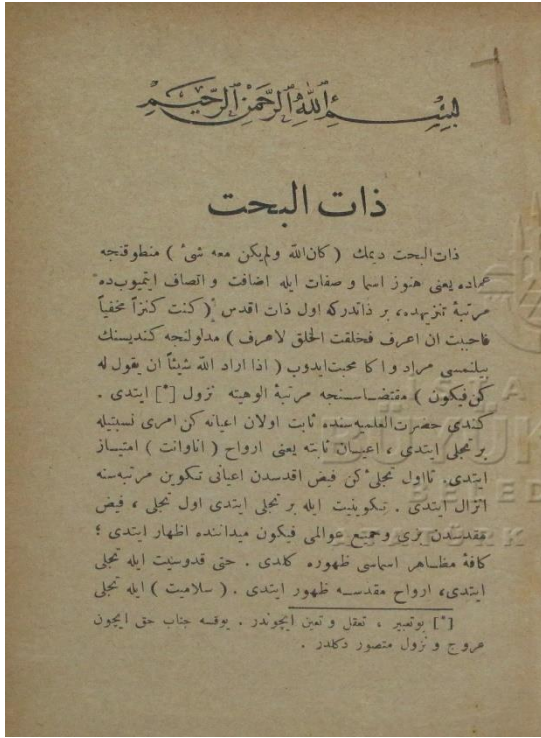 بسم الله الرحمن الرحيم
ذات البحت
ذات البحت ديمك ( كان الله ولم يكن معه شیء ) منطوقنجه
عماده يعنى هنوز اسما و صفات ايله اضافت و اتصاف ايتميوب ده
مرتبهٔ تنزيهده، بر ذاتدركه اول ذات اقدس ( كنت كنزاً مخفياً
فاحببت ان اعرف فخلقت الخلق لاعرف ) مدلولنجه كنديسنك
بيلنمسى مراد و اكا محبت ايدوب ( اذا اراد الله شيئاً ان يقول له
كن فيكون ) مقتضاسنجه مرتبهٔ الوهيته نزول [*] ايتدى .
كندى حضرت العلميه سنده ثابت اولان اعيانه كن امرى نسبتيله
بر تجلى ايتدى ، اعيان ثابته يعنى ارواح ( انا وانت ) امتياز
ايتدى. تا اول تجلیٔ كن فيض اقدسدن اعيانى تكوين مرتبه سنه
انزال ايتدى . تكوينيت ايله بر تجلى ايتدى اول تجلى ، فيض
مقدسدن برى وجميع عوالمى فيكون ميداننده اظهار ايتدى ؛
كافهٔ مظاهر اسماسى ظهوره كلدى . حتى قدوسيت ايله تجلى
ايتدى، ارواح مقدسه ظهور ايتدى . ( سلاميت ) ايله تجلى
[*] بوتعبير ، تعقل و تعين ايچوندر . يوقسه جناب حق ايچون
عروج و نزول متصور دكلدر .
BÜYÜK
BELED
ATATÜRK